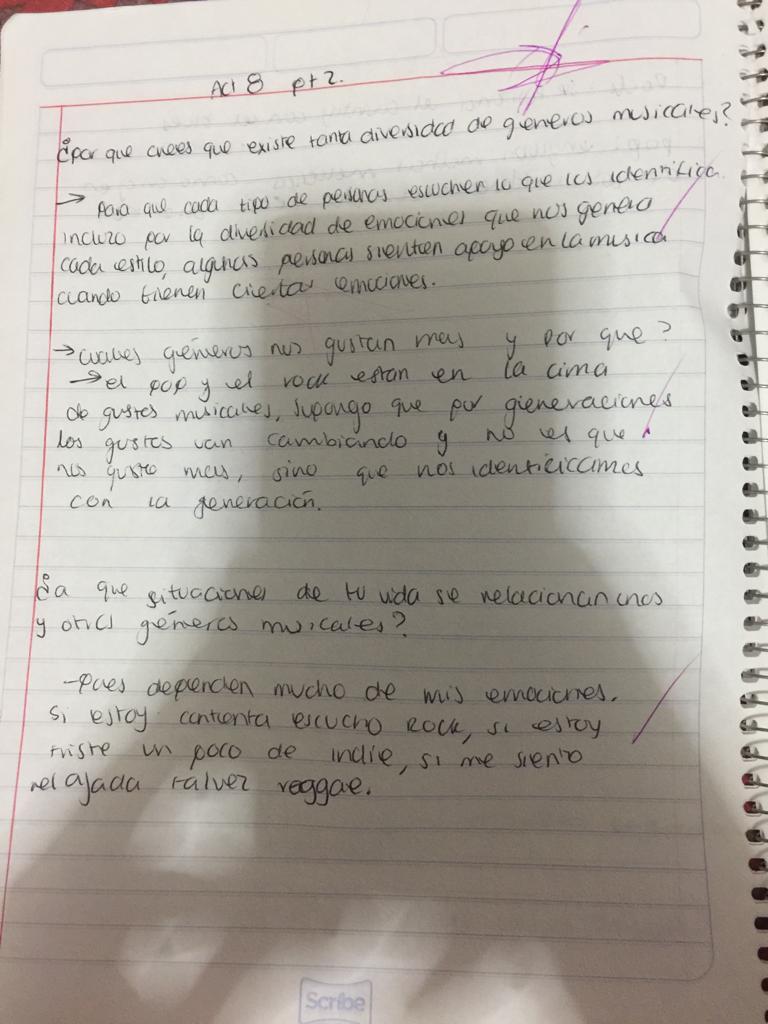 Act 8 pt 2.
¿por que crees que existe tanta diversidad de géneros musicales?
→ Para que cada tipo de personas escuchen lo que los identifica
incluzo por la diversidad de emociones que nos genera
cada estilo, algunas personas sienten apoyo en la musica
cuando tienen ciertas emociones.
→ cuales géneros nos gustan mas y por que?
→ el pop y el rock estan en la cima
de gustos musicales, supongo que por generaciones
los gustos van cambiando y no es que
nos guste mas, sino que nos identificamos
con la generación.
¿a que situaciones de tu vida se relacionan unos
y otros géneros musicales?
- pues dependen mucho de mis emociones.
si estoy contenta escucho Rock, si estoy
triste un poco de indie, si me siento
relajada talvez reggae.
Scribe